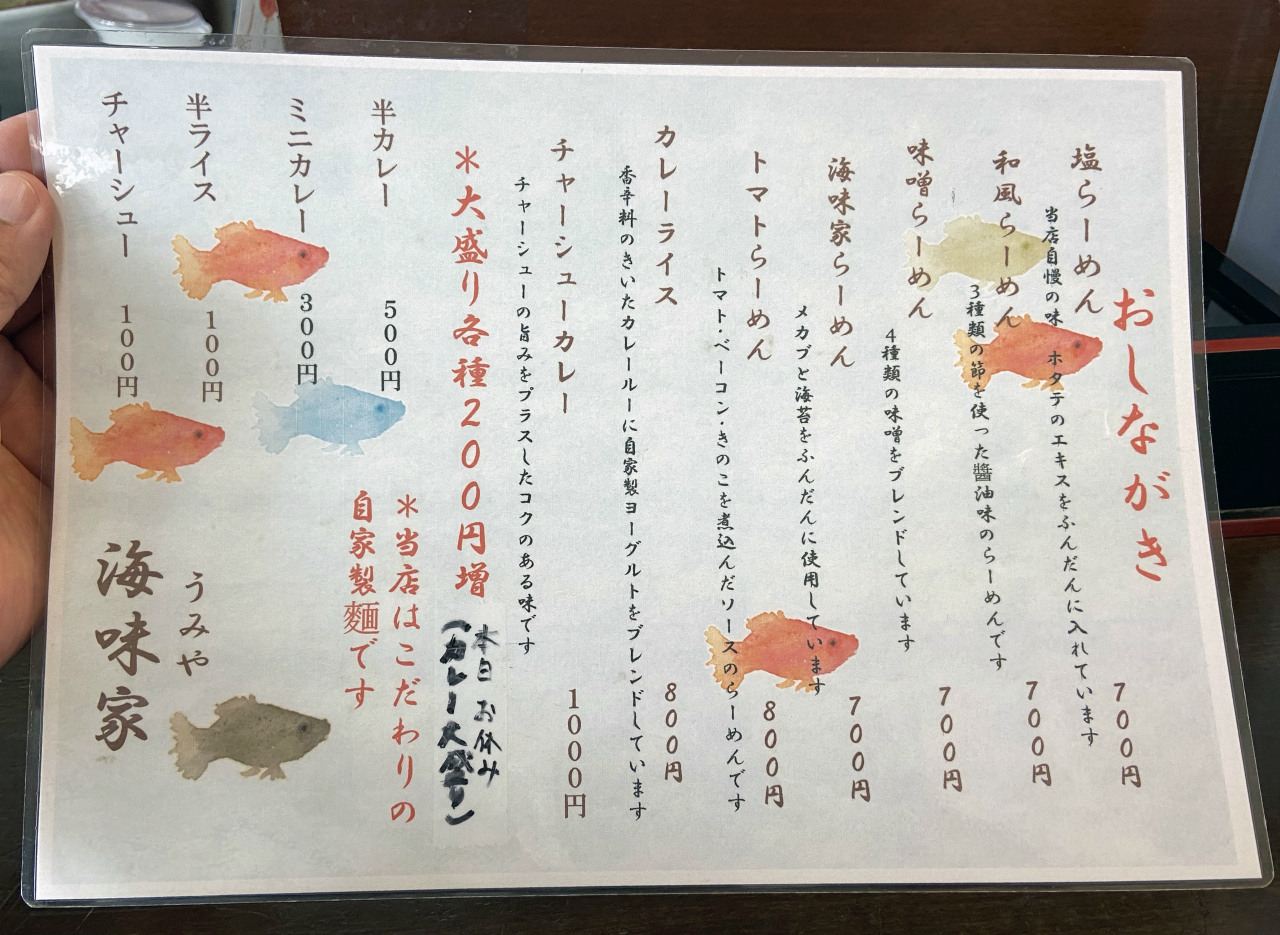 おしながき
塩らーめん
700円
当店自慢の味 ホタテのエキスをふんだんに入れています
和風らーめん
700円
3種類の節を使った醤油味のらーめんです
味噌らーめん
700円
4種類の味噌をブレンドしています
海味家らーめん
700円
メカブと海苔をふんだんに使用しています
トマトらーめん
800円
トマト・ベーコン・きのこを煮込んだソースのらーめんです
カレーライス
800円
香辛料のきいたカレールーに自家製ヨーグルトをブレンドしています
チャーシューカレー
1000円
チャーシューの旨みをプラスしたコクのある味です
*大盛り各種200円増
本日 お休み
(カレー大盛り)
半カレー
500円
ミニカレー
300円
半ライス
100円
チャーシュー
100円
*当店はこだわりの
自家製麵です
うみや
海味家